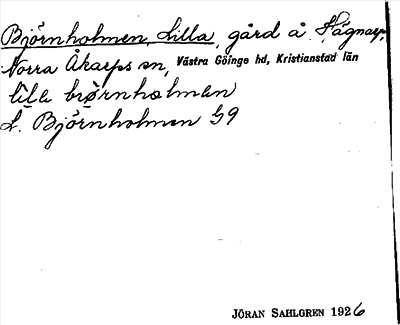 Björnholmen, Lilla, gård å Hägnarp,
Norra Åkarps sn, Västra Göinge hd, Kristianstad län
lila bıørnholmen
L. Björnholmen G9
JÖRAN SAHLGREN 1926